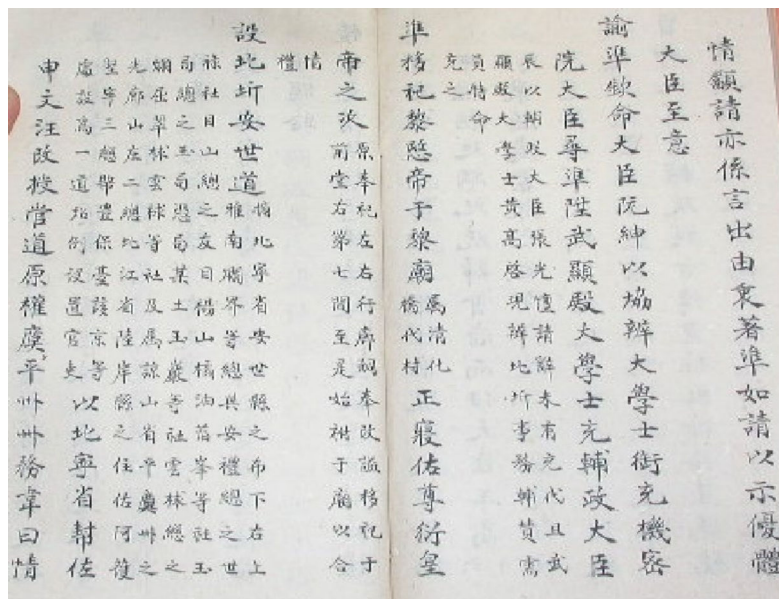 情籲請亦係言出由衷著準如請以示優體
大臣至意
諭準欽命大臣阮紳以協辦大學士銜充機密
院大臣尋準陞武顯殿大學士充輔政大臣
辰以輔政大臣張光憻請辭未有充代且武
顯殿大學士黃高啓現辦北圻事務輔贊需
員特命
充之
準移祀黎愍帝于黎廟
屬清化
橋代村
正寢佑尊衍皇
帝之次
原奉祀左右行廊祠奉改議移祀于
前堂右第七間至是始祔于廟以合
情
禮
設北圻安世道
摘北寧省安世縣之布下右上
雅南隴界等總與安禮總之世
祿社目山總之友目楊山橘油蓿峯等社玉
局總之玉局憑局某土玉巖等社雲林總之
嫻巫翠林雲林等社及馬諒山省平慶州之
光廊山庄二總北江省陸岸縣之住佐阿薓
堅寧三總幣禮保臺護京等
處設為一道招劄設置官吏
以北寧省幫佐
申文汪改授管道原權廣平卅卅務韋曰情